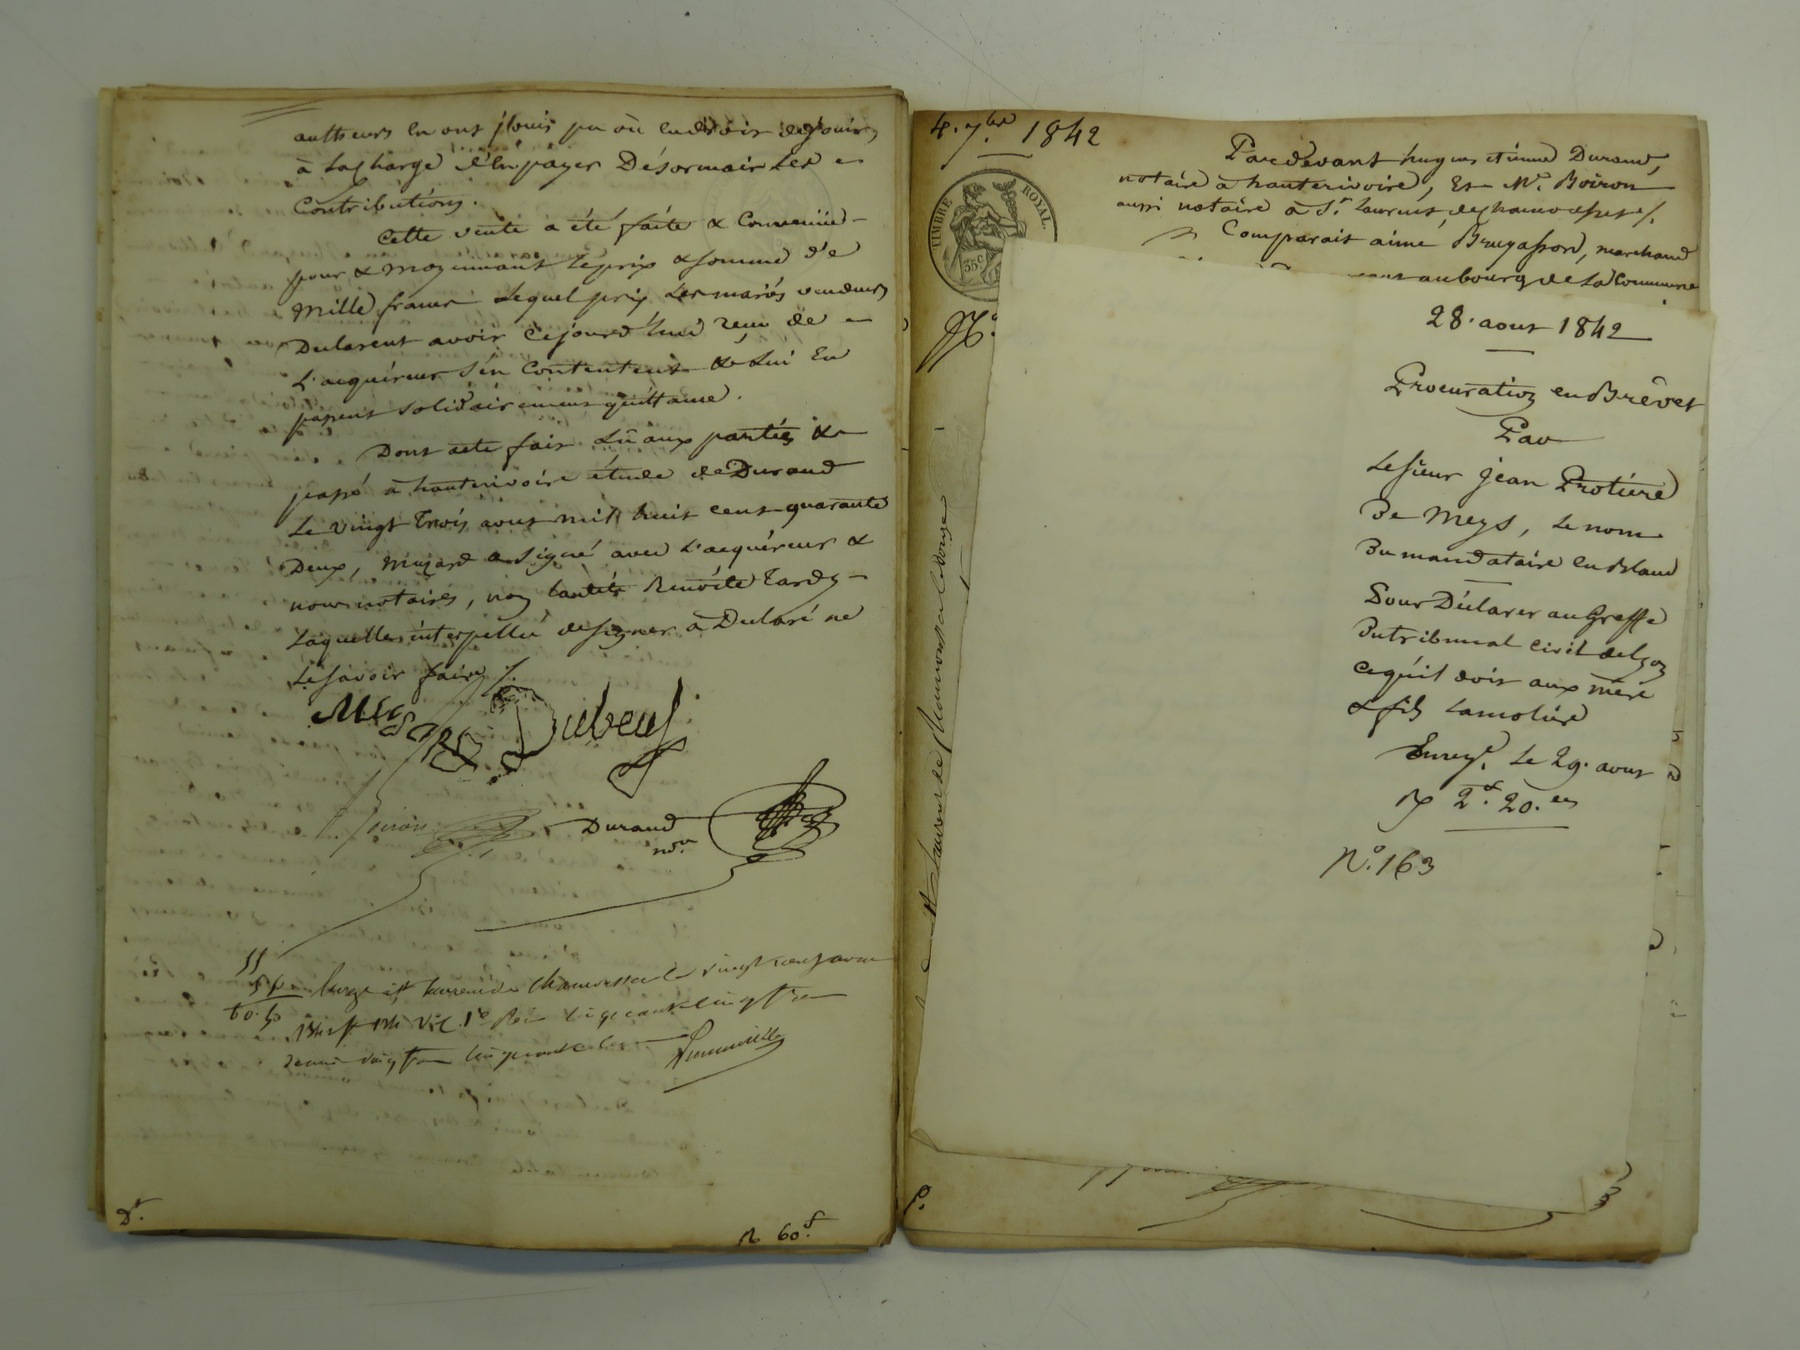 autheurs en ont joui pu où endroit de jouir
à la charge d'en payer Désormais les
Contributions.
Cette vente a été faite & Convenue
pour & moyennant le prix & somme de
mille francs lequel prix les mariés vendeurs
Déclarent avoir cejourd'hui reçu de
L'acquéreur s'en Contentent & Lui En
passent solidairement quittance.
Dont acte fait Lû aux parties &
passé à hauterivoire étude de Durand
Le vingt trois aout mil huit cent quarante
Deux, Mazard a signé avec L'acquéreur &
nous notaires, non Benoite Tardy
Laquelle interpellée de signer a Déclaré ne
Le savoir faire /.
Dubeuf
Durand
nore
St Laurent de Chamousset le vingt neuf aout
vingt cinquante
60.f
4. 7bre 1842
Pardevant hugues étienne Durand,
notaire à hauterivoire, Et Me. Boiron
aussi notaire à St. Laurent de Chamousset /.
Comparait aimé Bruyasson, marchand
au bourg de La Commune
TIMBRE ROYAL.
35c
St Laurent de Chamousset le douze
28. aout 1842
Procuration en Brêvet
Par
Le sieur jean Protière
De Meys, Le nom
Du mandataire en Blanc
Pour Déclarer au Greffe
Du tribunal civil de Lyon
ce qu'il doit aux mère
& fils Lamolière
Enregé. Le 29. aout
R 2f. 20.c
No. 163